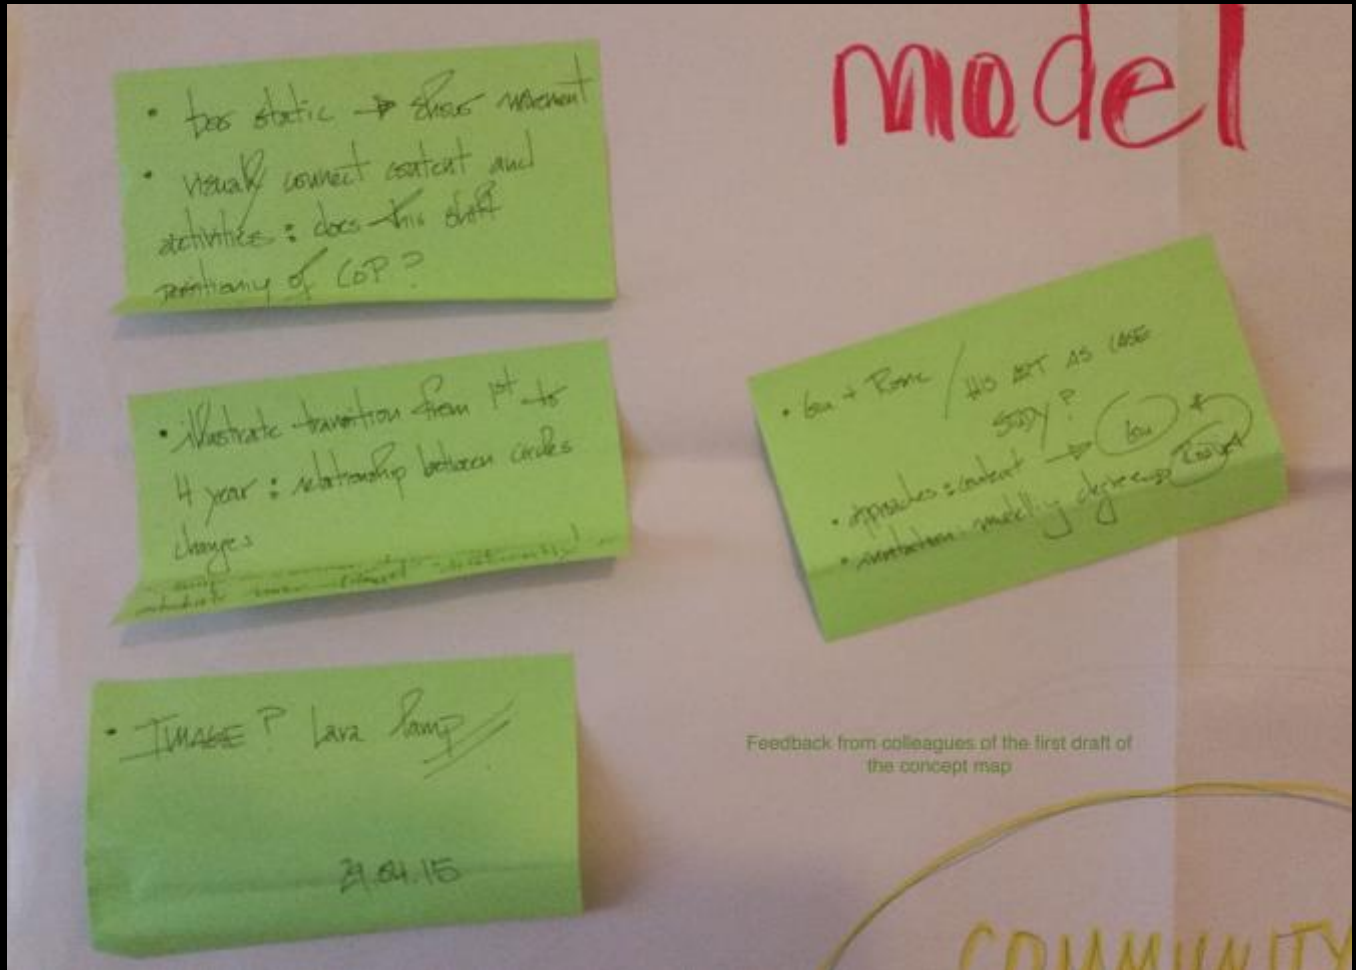 model
• too static → show movement
• visually connect content and
activities : does this shift
positioning of CoP ?
• illustrate transition from 1st to
4 year : relationship between circles
changes
• IMAGE ? Lava lamp
04.15
• Lou + / HIS ART AS CASE
STUDY ?
• approaches : content → Lou
modelling
Feedback from colleagues of the first draft of
the concept map
COMMUNITY